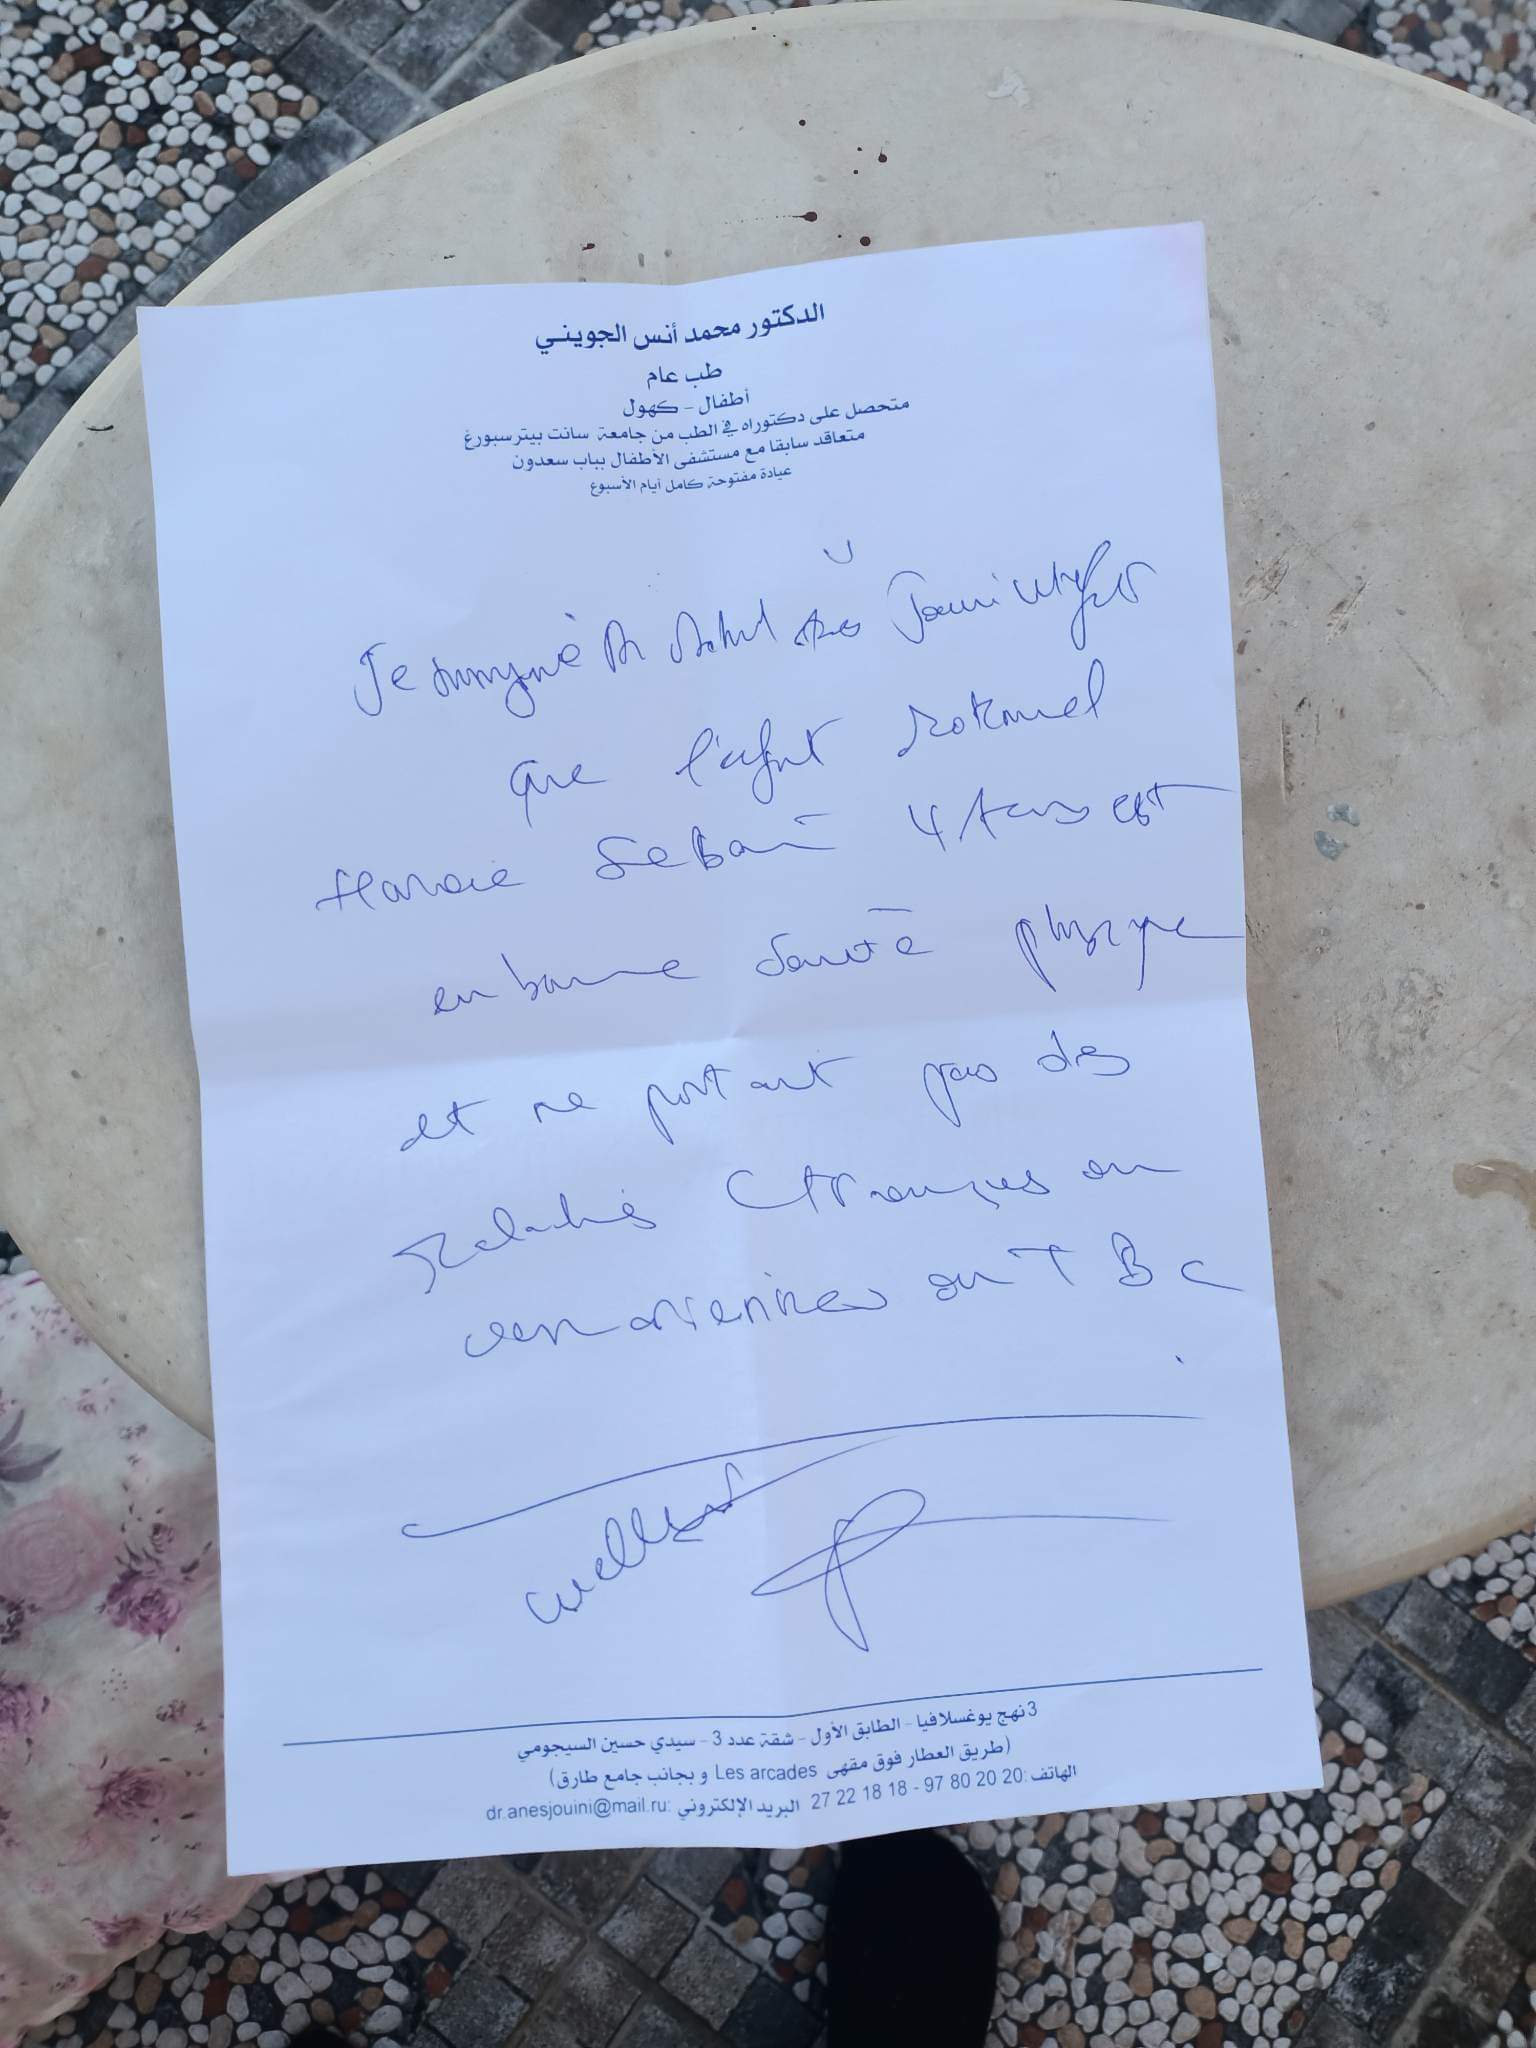 الدكتور محمد أنس الجويني
طب عام
أطفال - كهول
متحصل على دكتوراه في الطب من جامعة سانت بيترسبورغ
متعاقد سابقا مع مستشفى الأطفال بباب سعدون
عيادة مفتوحة كامل أيام الأسبوع
Je Dr Jouini
que l'enfant
Sebai 4 Ans est
en bonne santé physique
et ne portant pas des
Maladies Chroniques ou
ou TBC
3 نهج يوغسلافيا - الطابق الأول - شقة عدد 3 - سيدي حسين السيجومي
(طريق العطار فوق مقهى Les arcades و بجانب جامع طارق)
الهاتف: 20 20 80 97 - 18 18 22 27 البريد الإلكتروني: dr.anesjouini@mail.ru